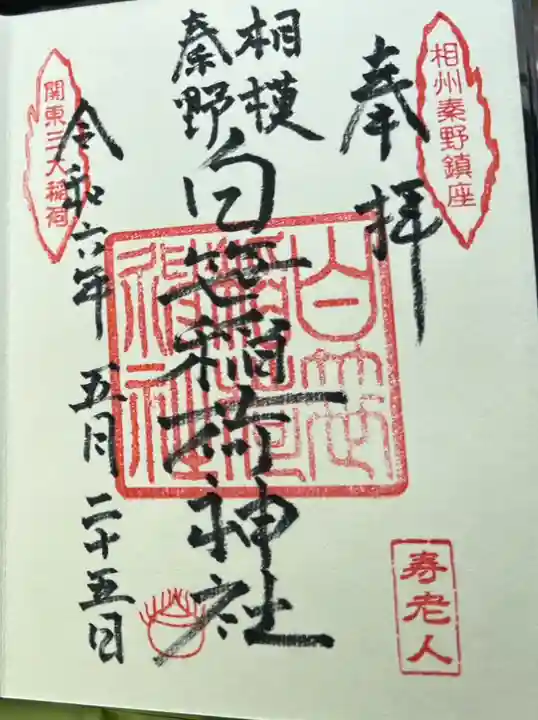 相州秦野鎮座
奉拝
相模
秦野
白笹稲荷神社
白笹
稲荷
神社
関東三大稲荷
令和六年 五月 二十五日
寿老人